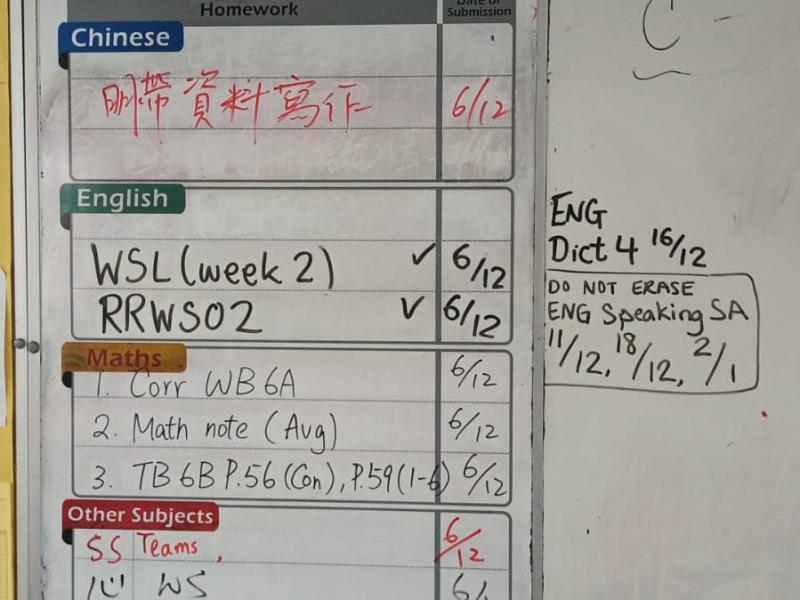 Homework
Date of Submission
Chinese
明帶資料寫作 6/12
English
WSL (week 2) ✓ 6/12
RRWS02 ✓ 6/12
Maths
1. Corr WB 6A 6/12
2. Math note (Avg) 6/12
3. TB 6B P.56 (Con), P.59 (1-6) 6/12
Other Subjects
SS Teams, 6/12
心 WS
C -
ENG
Dict 4 16/12
DO NOT ERASE
ENG Speaking SA
11/12, 18/12, 2/1